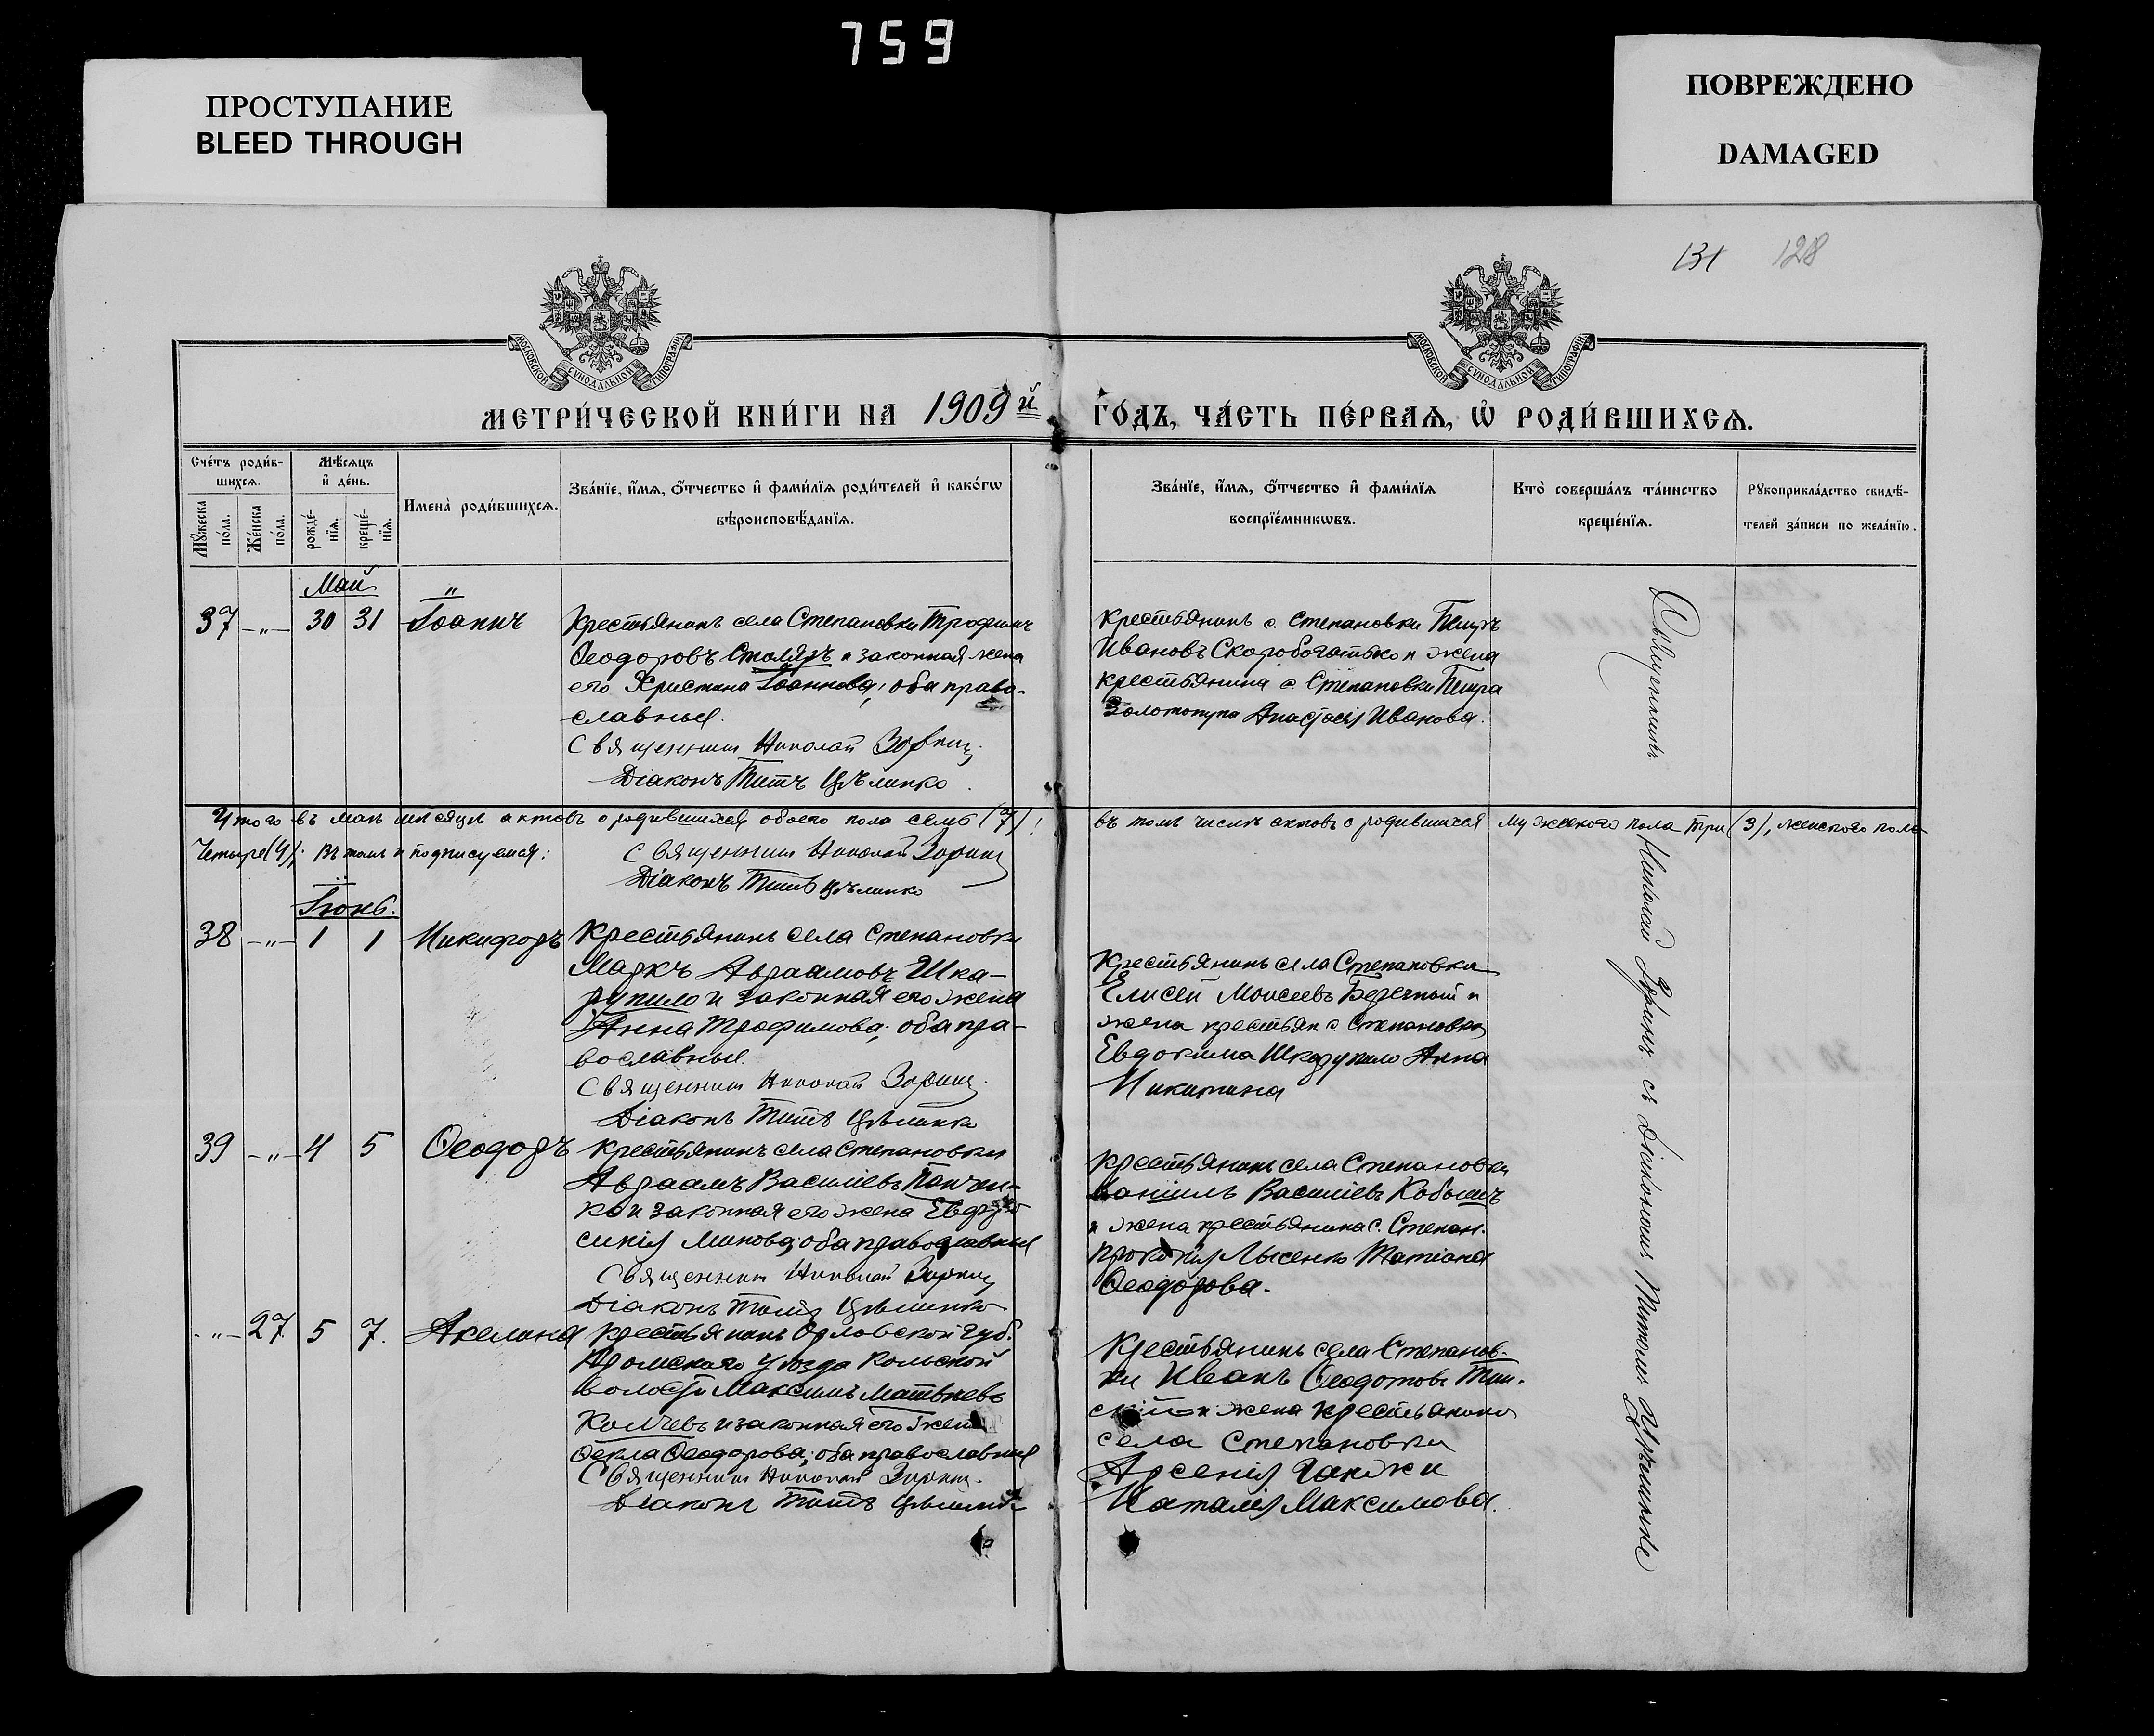 759
ПРОСТУПАНИЕ
BLEED THROUGH
ПОВРЕЖДЕНО
DAMAGED
131 128
МОСКОВСКОЙ СѴНОДАЛЬНОЙ ТИПОГРАФІИ
МОСКОВСКОЙ СѴНОДАЛЬНОЙ ТИПОГРАФІИ
МЕТРИ́ЧЕСКОЙ КНИ́ГИ НА 1909й ГО́ДЪ, ЧА́СТЬ ПЕ́РВАѦ, Ѡ҆ РОДИ́ВШИХСѦ.
Сче́тъ роди́в-
шихсѧ.
Мꙋ́жеска
по́ла.
Же́нска
по́ла.
Мѣ́сѧцъ
и҆ де́нь.
рожде́-
нїѧ.
креще́-
нїѧ.
И҆мена̀ роди́вшихсѧ.
Зва́нїе, и҆́мѧ, ѻ҆́тчество и҆ фами́лїѧ роди́телей и҆ како́гѡ
вѣроисповѣ́данїѧ.
Зва́нїе, и҆́мѧ, ѻ҆́тчество и҆ фами́лїѧ
воспрїе́мникѡвъ.
Кто̀ соверша́лъ та́инство
креще́нїѧ.
Рꙋкоприкла́дство свидѣ́-
телей за́писи по жела́нїю.
Май "
37 -"- 30 31 Іоаннъ
Крестьянинъ села Степановки Трофимъ
Ѳеодоровъ Столяръ и законная жена
его Христина Іоаннова; оба право-
славные.
Священникъ Николай Зоринъ.
Діаконъ Титъ Цѣлинко.
Крестьянинъ с. Степановки Петръ
Ивановъ Скоробогатько и жена
крестьянина с. Степановки Петра
Золотопупа Анастасія Иванова.
Итого въ маѣ мѣсяцѣ актовъ о родившихся обоего пола семь (7)! въ томъ числѣ актовъ о родившихся мужескаго пола три (3), женскаго пола
Четыре (4). Въ томъ и подписуемся:
Священникъ Николай Зоринъ
Діаконъ Титъ Цѣлинко
Іюнь.
38 -"- 1 1 Никифоръ
Крестьянинъ села Степановки
Маркъ Авраамовъ Шка-
рупило и законная его жена
Анна Трофимова; оба пра-
вославные
Священникъ Николай Зоринъ.
Діаконъ Титъ Цѣлинко
Крестьянинъ села Степановки
Елисей Моисеевъ Безечный и
жена крестьян с. Степановки
Евдокима Шкарупило Анна
Никитина
39 -"- 4 5 Ѳеодоръ
Крестьянинъ села Степановки
Авраамъ Василіевъ Панчен-
ко и законная его жена Евфро
синія Минова; оба православные
Священникъ Николай Зоринъ
Діаконъ Титъ Цѣлинко
Крестьянинъ села Степановки
Даніилъ Василіевъ Кобышъ
и жена крестьянина с. Степан.
Прокопія Лысенко Татіана
Ѳеодорова.
-"- 27 5 7. Акелина
Крестьянинъ Орловской губ.
Кромскаго уѣзда
волости Максимъ Матвѣевъ
и законная его жена
Ѳекла Ѳеодорова; оба православные
Священникъ Николай Зоринъ.
Діаконъ Титъ Цѣлинко
Крестьянинъ села Степанов-
ки Иванъ Ѳеодотовъ
и жена крестьянина
села Степановки
Арсенія Ганжи
Наталія Максимова.
Священникъ Николай Зоринъ съ Діакономъ Титомъ Цѣлинко